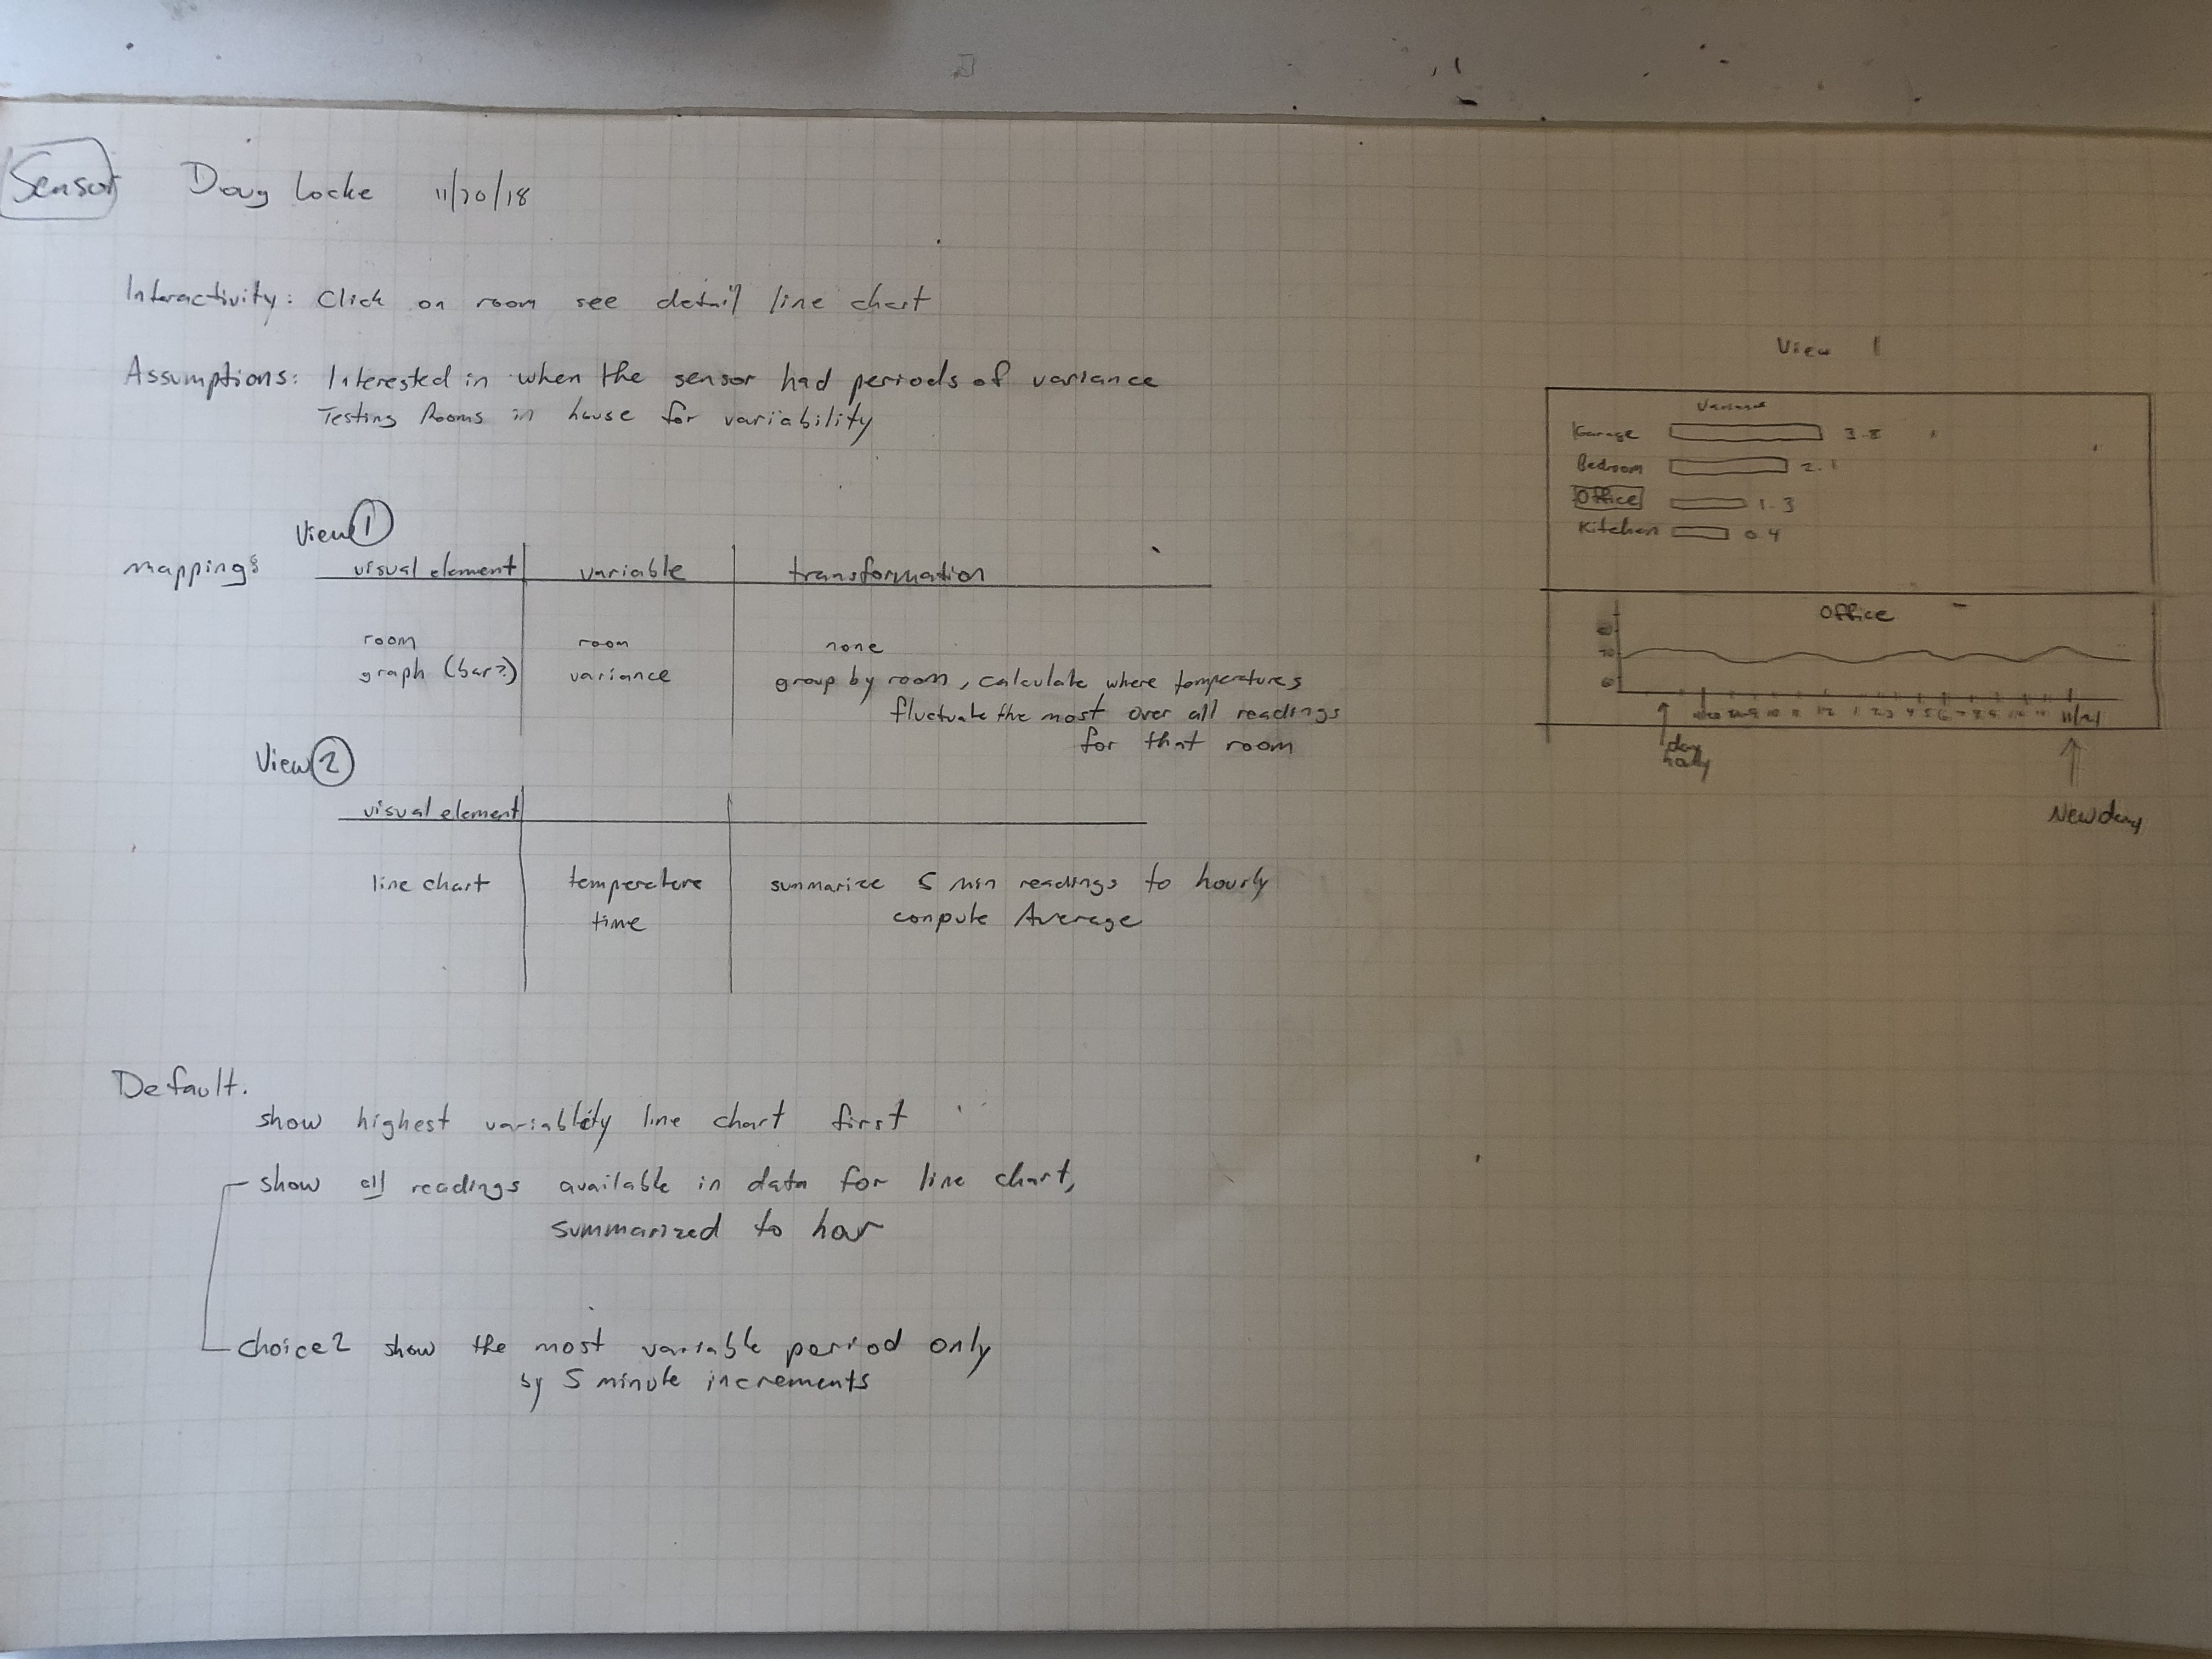 Sensor Doug Locke 11/20/18
Interactivity: Click on room see detail line chart
Assumptions: Interested in when the sensor had periods of variance
Testing Rooms in house for variability
View 1
mappings visual element variable transformation
room room none
graph (bar?) variance group by room, calculate where temperatures
fluctuate the most over all readings
for that room
View 2
visual element
line chart temperature summarize 5 min readings to hourly
time compute Average
Default.
show highest variablity line chart first
show all readings available in data for line chart,
summarized to hour
choice2 show the most variable period only
by 5 minute increments
View 1
Variance
Garage 3.8
Bedroom 2.1
Office 1.3
Kitchen 0.4
Office
70
60
10 11 12 1 2 3 4 5 6 7 8 9 11/21
day
New day